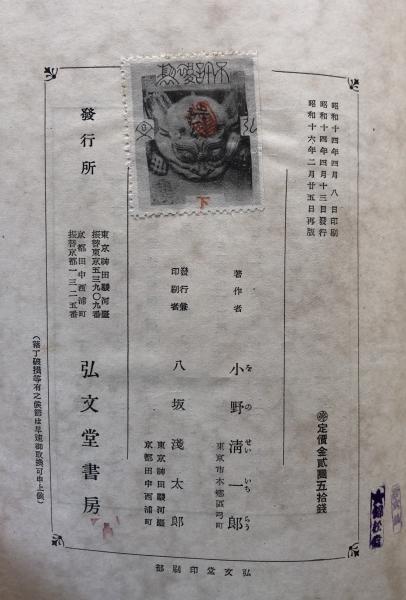 昭和十四年四月八日印刷
昭和十四年四月十三日發行
昭和十六年二月廿五日再版
定價金貳圓五拾錢
著作者
小野淸一郞
をのせいいちらう
東京市本鄕區弓町
發行兼
印刷者
八坂淺太郞
東京神田駿河臺
京都田中西浦町
不許複製
弘
下
發行所
東京神田駿河臺
振替東京五三九〇九番
京都田中西浦町
振替京都一三一二五番
弘文堂書房
弘文堂印刷部